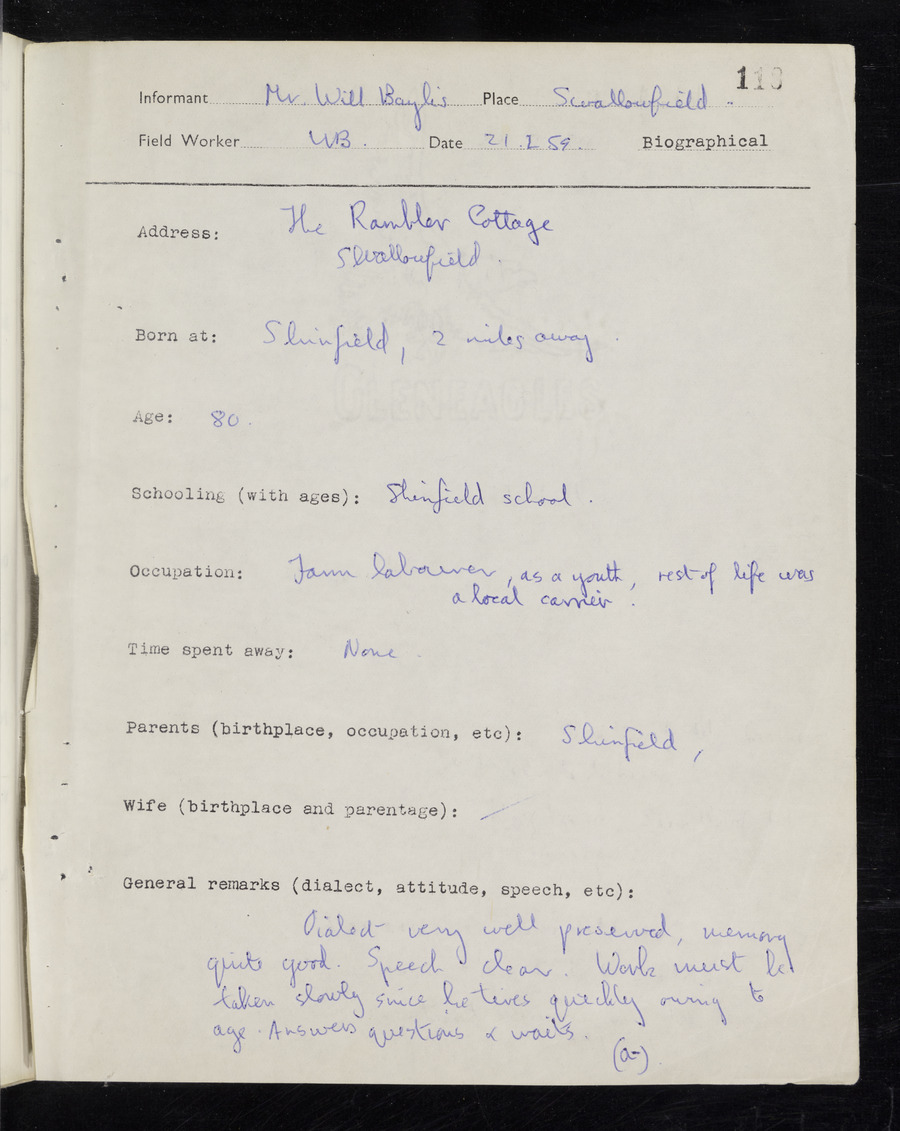 118
Informant Mr. Will Baylis Place Swallowfield.
Field Worker WB. Date 21.I.59. Biographical
Address: The Rambler Cottage
Swallowfield.
Born at: Shinfield, 2 miles away.
Age: 80.
Schooling (with ages): Shinfield school.
Occupation: Farm labourer, as a youth, rest of life was
a local carrier.
Time spent away: None.
Parents (birthplace, occupation, etc): Shinfield,
Wife (birthplace and parentage): /
General remarks (dialect, attitude, speech, etc):
Dialect very well preserved, memory
quite good. Speech clear. Work must be
taken slowly since he tires quickly owing to
age. Answers questions & waits.
(a-).